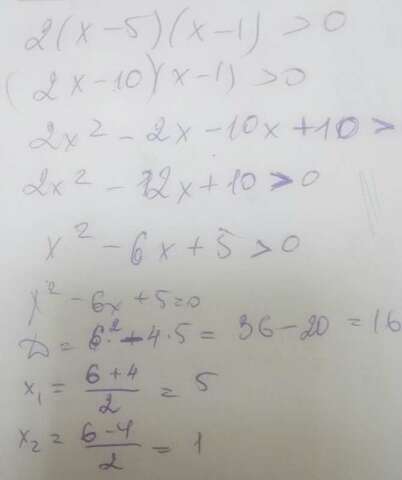 2(x-5)(x-1) > 0
(2x-10)(x-1) > 0
2x² - 2x - 10x + 10 >
2x² - 12x + 10 > 0
x² - 6x + 5 > 0
x² - 6x + 5 = 0
D = 6² - 4·5 = 36 - 20 = 16
x₁ = (6+4)/2 = 5
x₂ = (6-4)/2 = 1